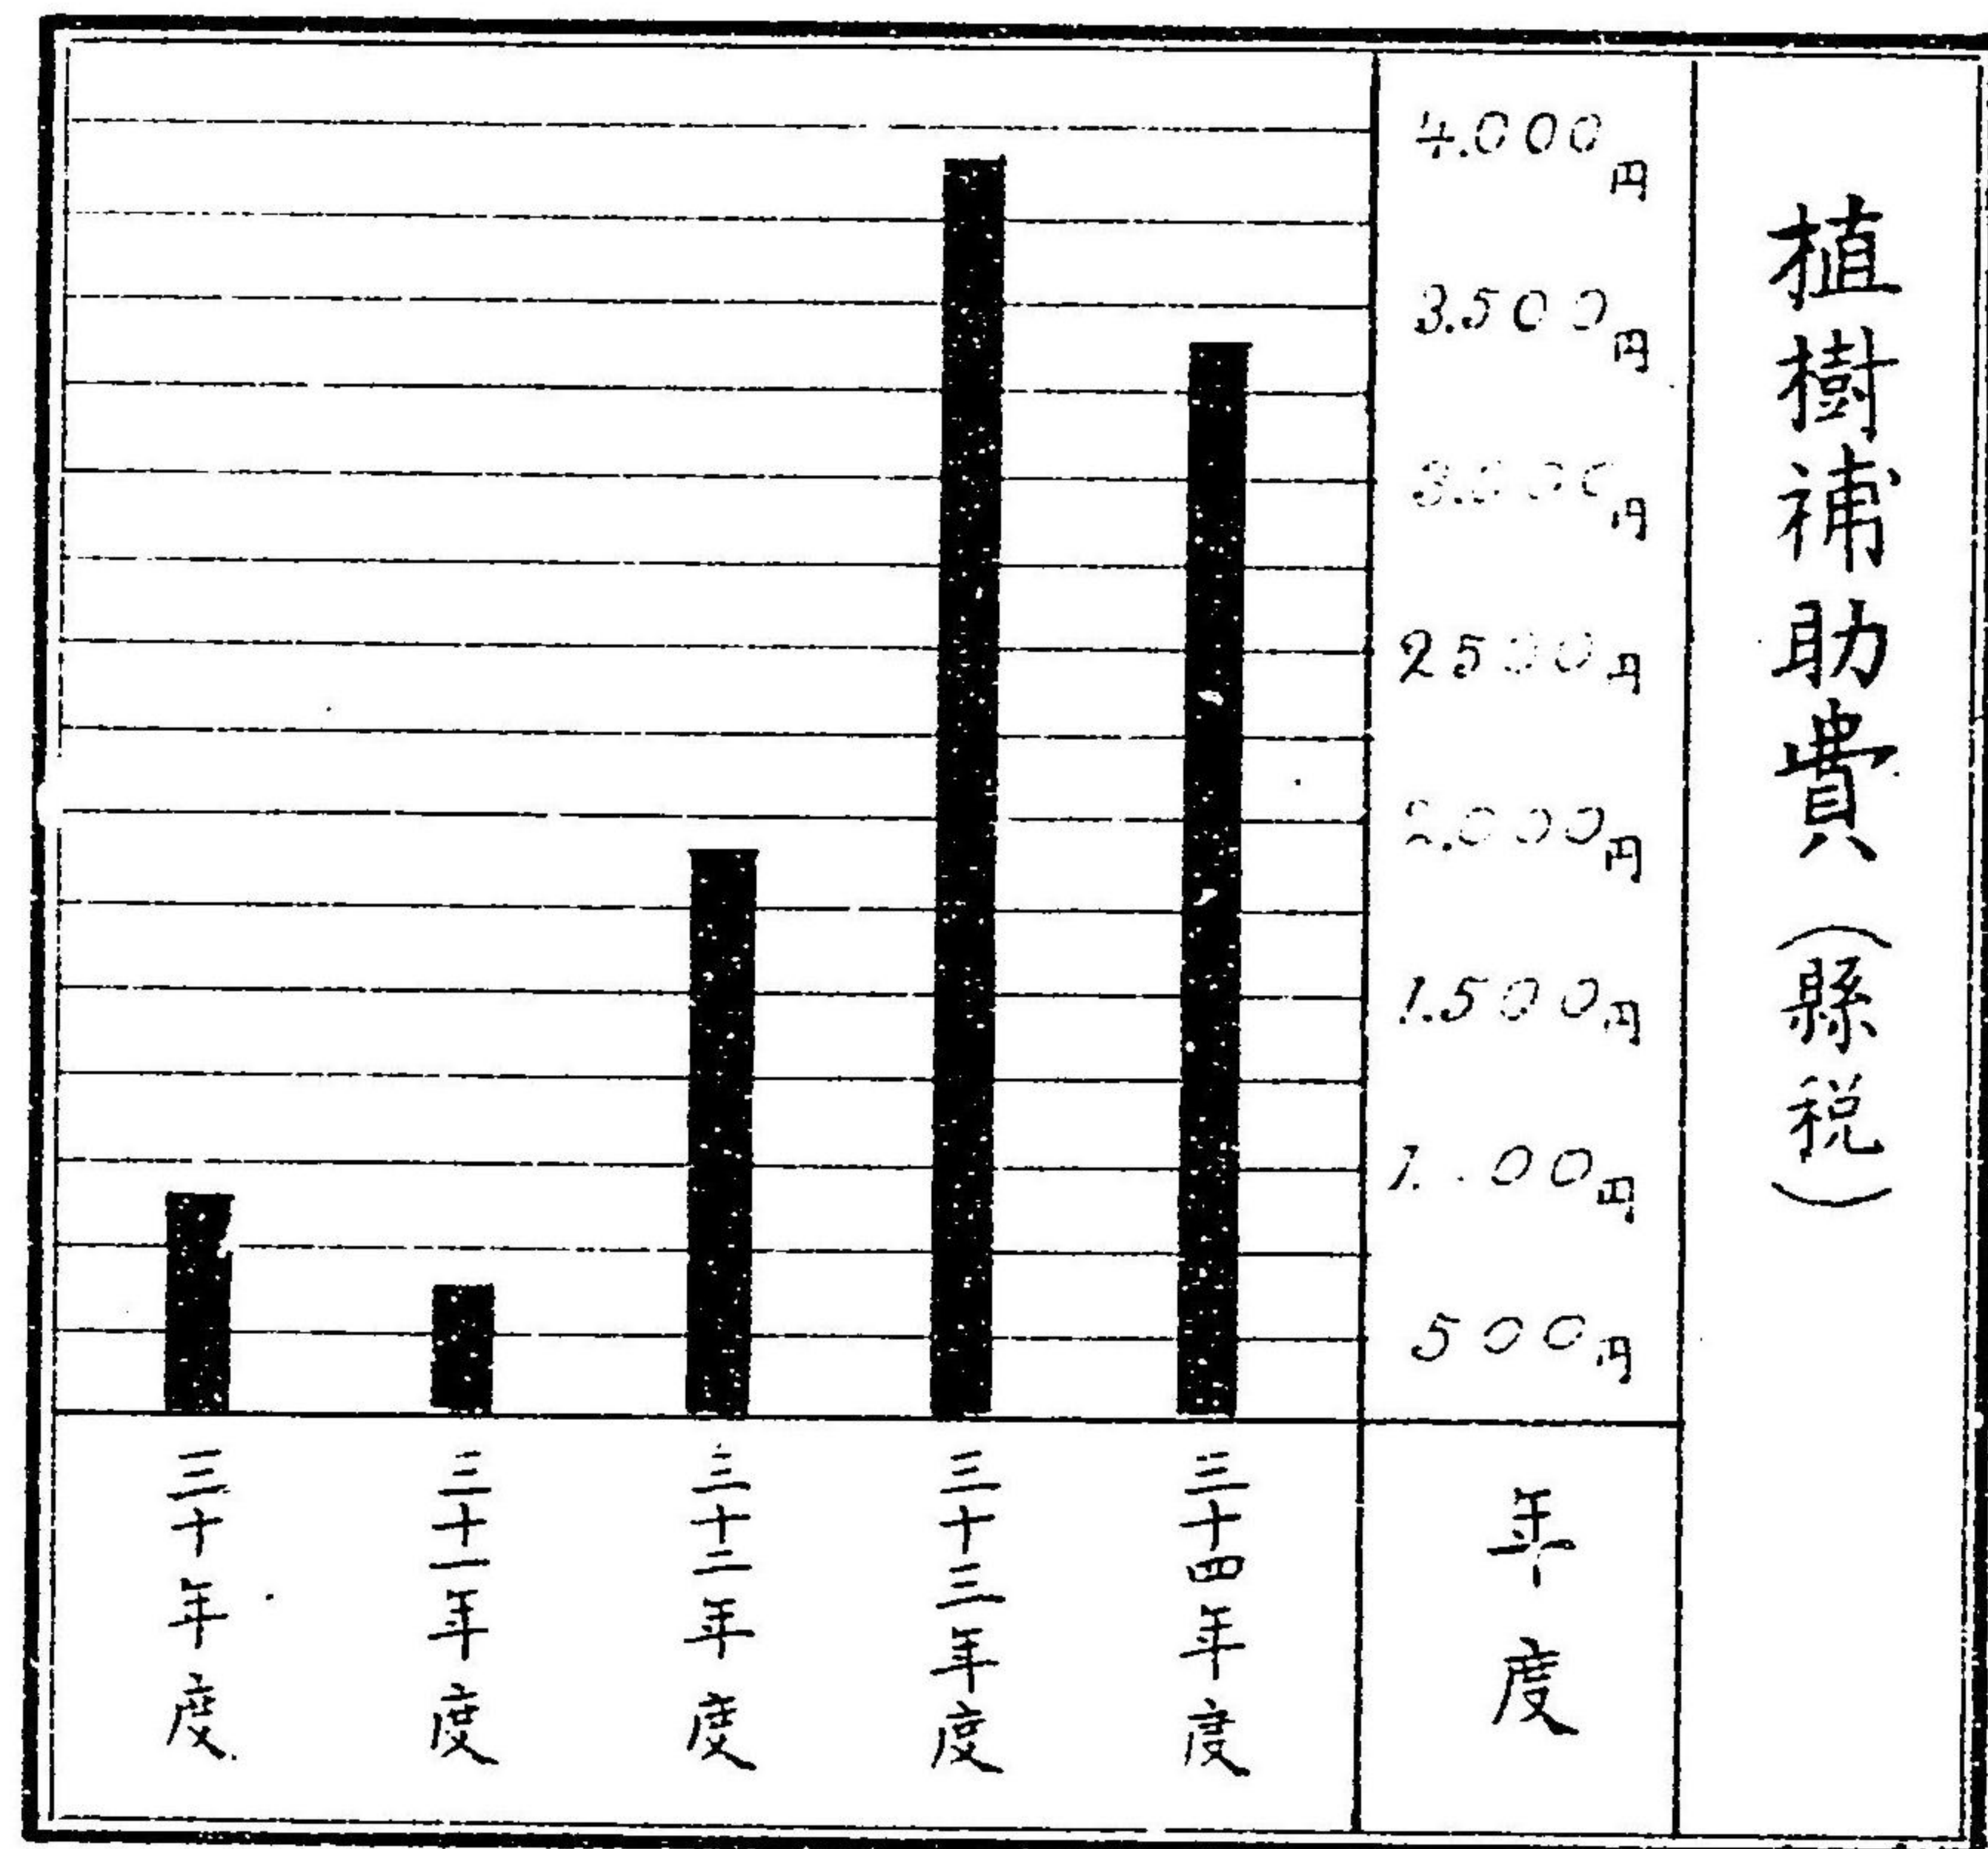 植樹補助費（縣税）
4.000円
3.500円
3.000円
2500円
2.000円
1.500円
1.000円
500円
年度
三十四年度
三十三年度
三十二年度
三十一年度
三十年度